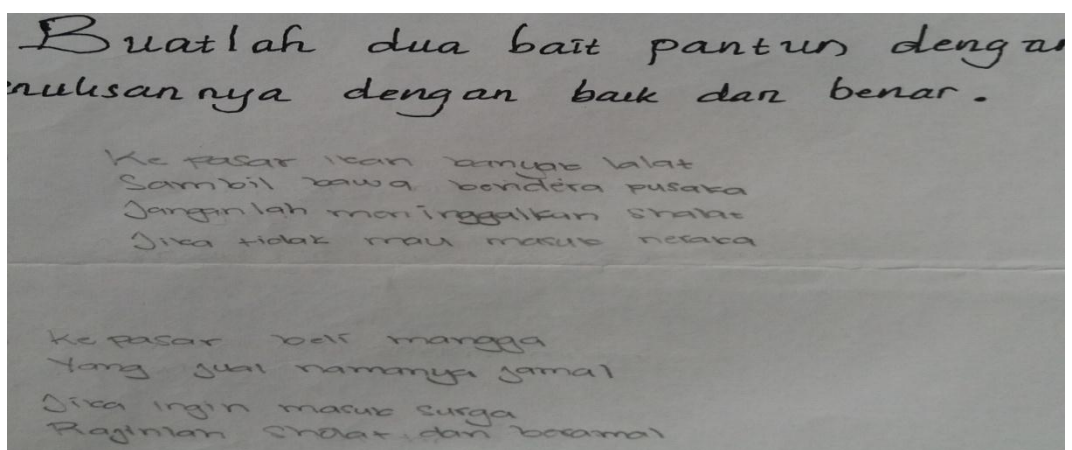 Buatlah dua bait pantun dengan
penulisannya dengan baik dan benar.
Ke pasar ikan banyak lalat
Sambil bawa bendera pusaka
Janganlah meninggalkan shalat
Jika tidak mau masuk neraka
Ke pasar beli mangga
Yang jual namanya jamal
Jika ingin masuk surga
Rajinlah sholat dan beramal